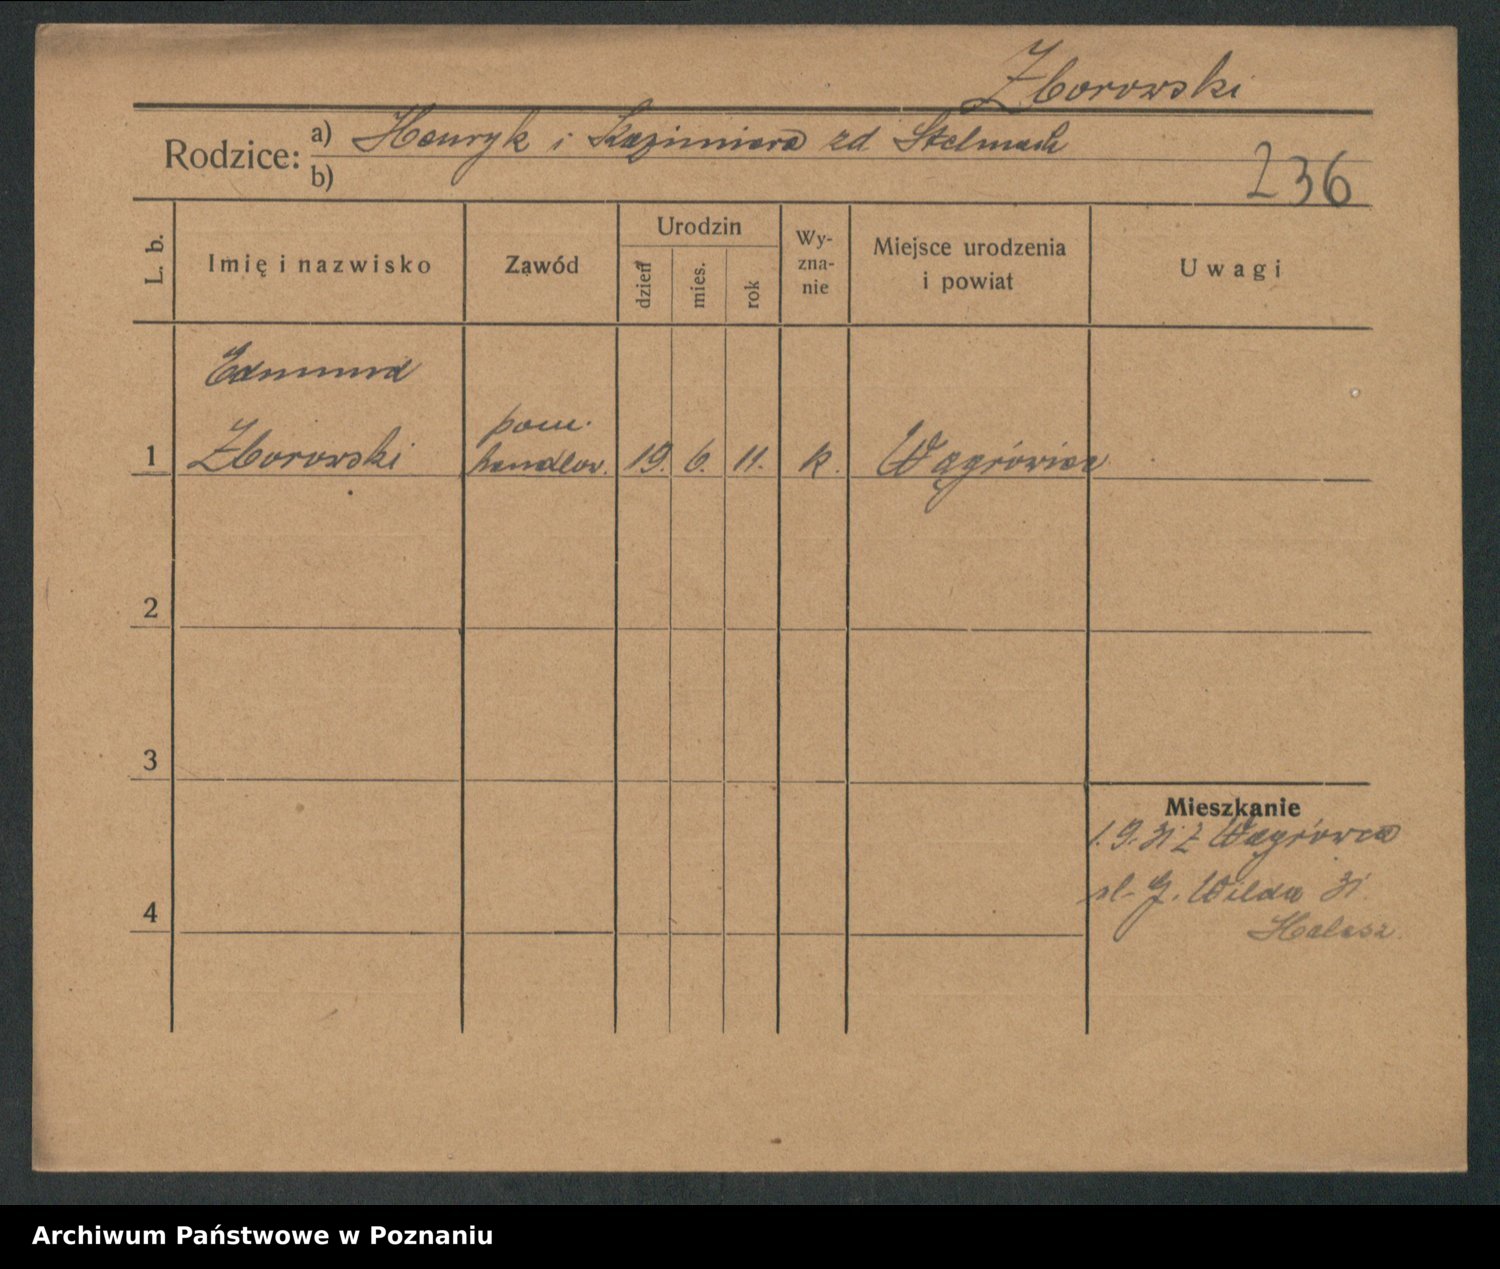 Zborowski
Rodzice: a) Henryk i Kazimiera zd Stelmach
b)
236
L. b.
Imię i nazwisko
Zawód
Urodzin
dzień
mies.
rok
Wy-
zna-
nie
Miejsce urodzenia
i powiat
Uwagi
Edmund
pom.
1 Zborowski handlow. 19. 6. 11. k. Wągrówiec
2
3
Mieszkanie
1.9.31 z Wągrówca
G. Wilda 31
4
Archiwum Państwowe w Poznaniu